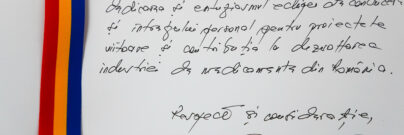 dăruirea și entuziasmul echipei de conducere
și întregului personal pentru proiectele
viitoare și contribuția la dezvoltarea
industriei de medicamente din România.
Respect și considerație,